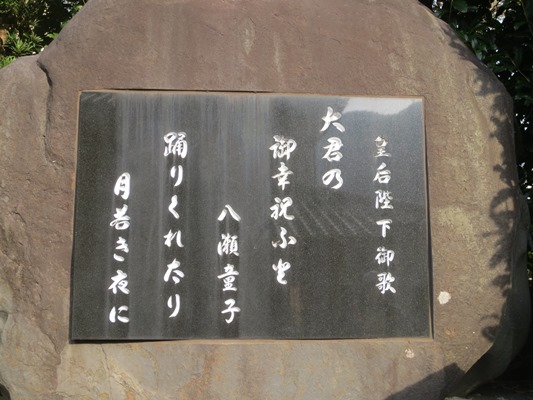 皇后陛下御歌
大君の
御幸祝ふと
八瀬童子
踊りくれたり
月若き夜に